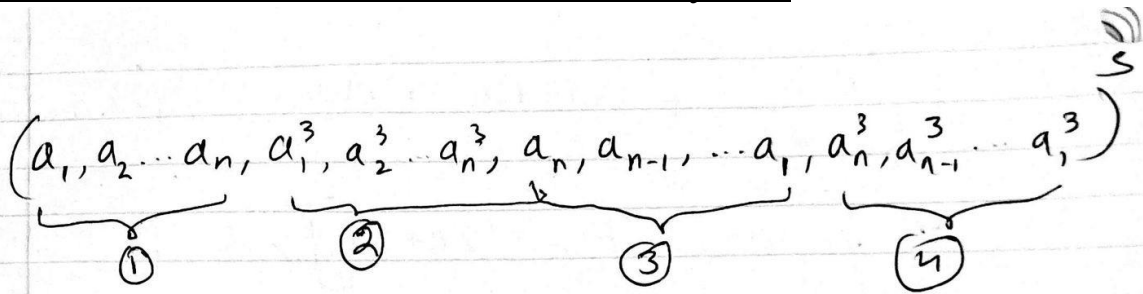 (a₁, a₂ ... aₙ, a₁³, a₂³ ... aₙ³, aₙ, aₙ₋₁, ... a₁, aₙ³, aₙ₋₁³ ... a₁³)ˢ
① ② ③ ④